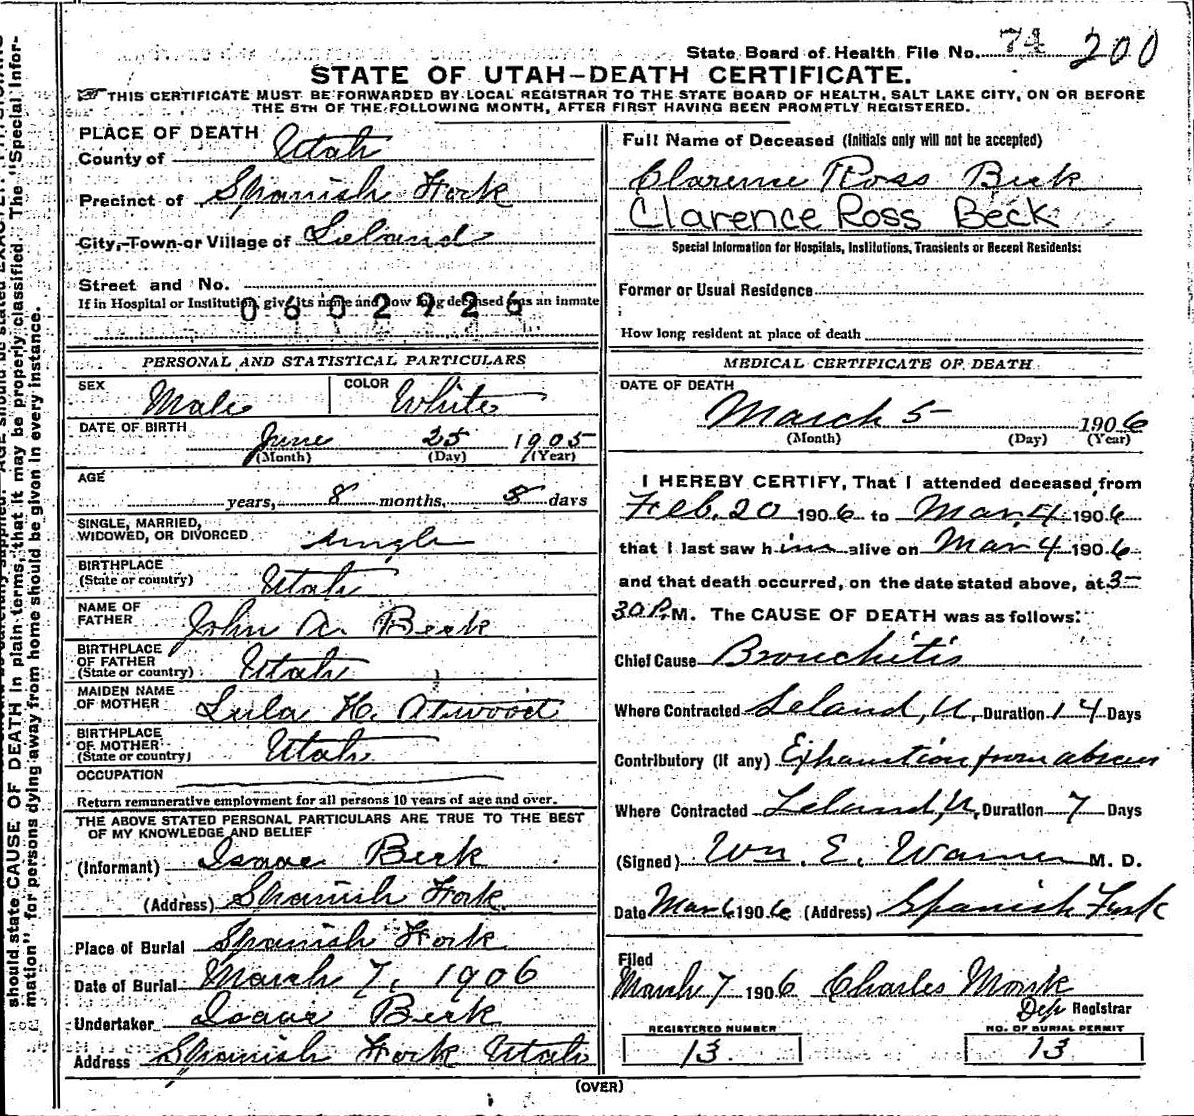 State Board of Health File No. 74 200
STATE OF UTAH-DEATH CERTIFICATE.
THIS CERTIFICATE MUST BE FORWARDED BY LOCAL REGISTRAR TO THE STATE BOARD OF HEALTH, SALT LAKE CITY, ON OR BEFORE
THE 5TH OF THE FOLLOWING MONTH, AFTER FIRST HAVING BEEN PROMPTLY REGISTERED.
PLACE OF DEATH
County of Utah
Precinct of Spanish Fork
City, Town or Village of Leland
Street and No.
If in Hospital or Institution, give its name and how long deceased was an inmate
0602926
PERSONAL AND STATISTICAL PARTICULARS
SEX Male COLOR White
DATE OF BIRTH June 25 1905
(Month) (Day) (Year)
AGE
years, 8 months, 8 days
SINGLE, MARRIED,
WIDOWED, OR DIVORCED Single
BIRTHPLACE
(State or country) Utah
NAME OF
FATHER John A. Beck
BIRTHPLACE
OF FATHER
(State or country) Utah
MAIDEN NAME
OF MOTHER Lula H. Atwood
BIRTHPLACE
OF MOTHER
(State or country) Utah
OCCUPATION
Return remunerative employment for all persons 10 years of age and over.
THE ABOVE STATED PERSONAL PARTICULARS ARE TRUE TO THE BEST
OF MY KNOWLEDGE AND BELIEF
(Informant) Isaac Beck
(Address) Spanish Fork
Place of Burial Spanish Fork
Date of Burial March 7, 1906
Undertaker Isaac Beck
Address Spanish Fork Utah
Full Name of Deceased (Initials only will not be accepted)
Clarence Ross Beck
Clarence Ross Beck
Special Information for Hospitals, Institutions, Transients or Recent Residents:
Former or Usual Residence
How long resident at place of death
MEDICAL CERTIFICATE OF DEATH
DATE OF DEATH
March 5 1906
(Month) (Day) (Year)
I HEREBY CERTIFY, That I attended deceased from
Feb. 20 1906 to Mar. 4 1906
that I last saw him alive on Mar 4 1906
and that death occurred, on the date stated above, at 3-
30 P. M. The CAUSE OF DEATH was as follows:
Chief Cause Bronchitis
Where Contracted Leland, U, Duration 14 Days
Contributory (if any) Exhaustion from abscess
Where Contracted Leland, U, Duration 7 Days
(Signed) Wm. E. Warner M. D.
Date Mar 6 1906 (Address) Spanish Fork
Filed
March 7 1906 Charles Monk
Dep Registrar
REGISTERED NUMBER
13
NO. OF BURIAL PERMIT
13
(OVER)
should state CAUSE OF DEATH in plain terms, that it may be properly classified. The "Special Infor-
mation" for persons dying away from home should be given in every instance.